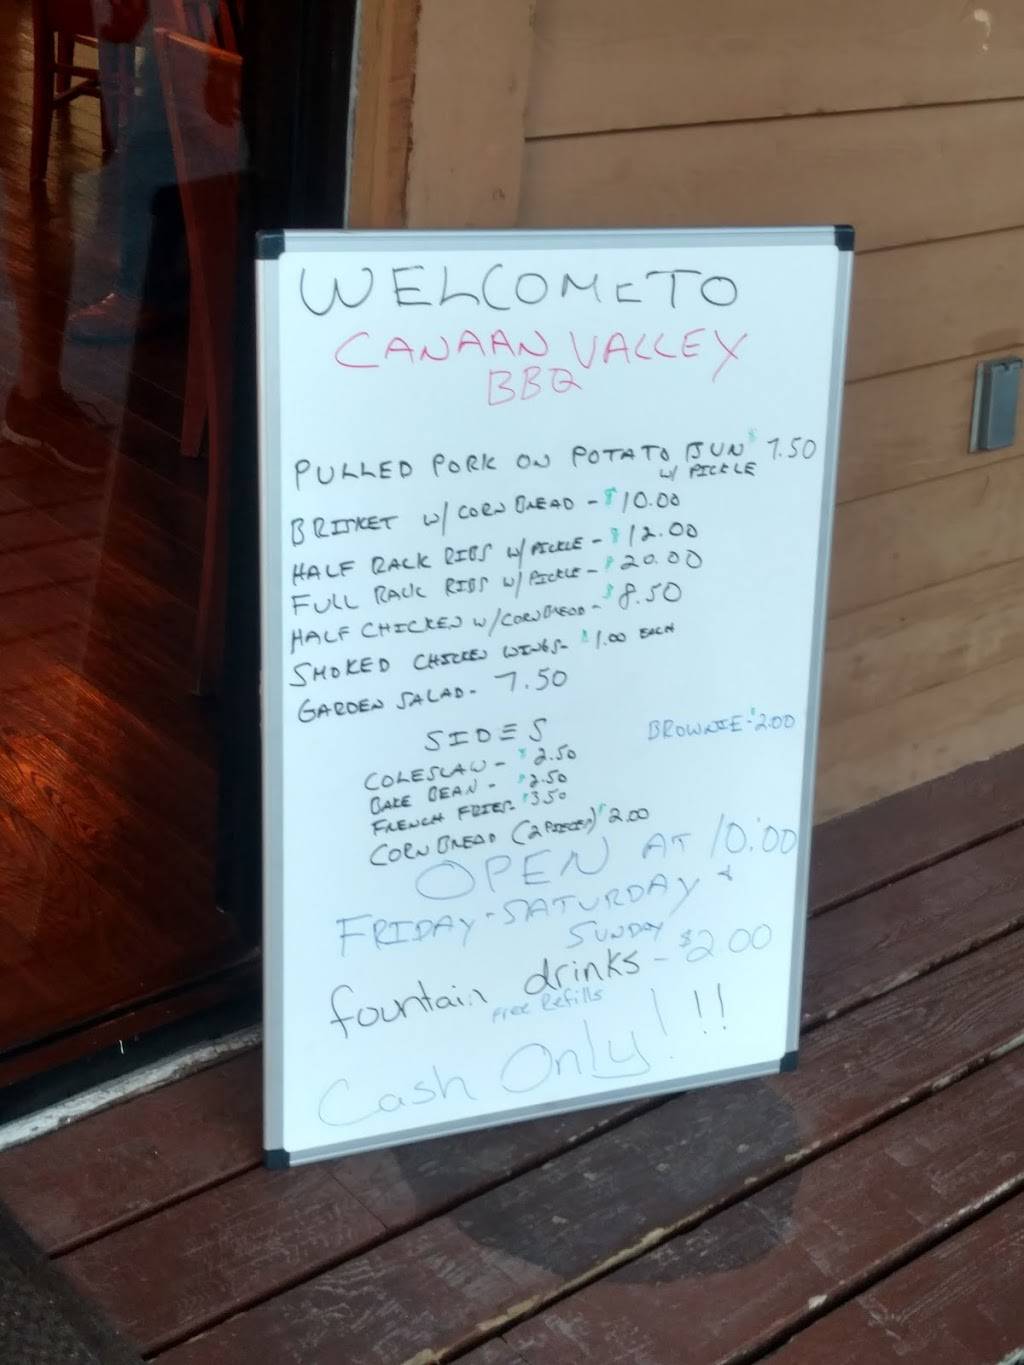 WELCOME TO
CANAAN VALLEY
BBQ
PULLED PORK ON POTATO BUN $ 7.50
W/ PICKLE
BRISKET W/ CORN BREAD - $10.00
HALF RACK RIBS W/ PICKLE - $12.00
FULL RACK RIBS W/ PICKLE - $20.00
HALF CHICKEN W/ CORN BREAD - $8.50
SMOKED CHICKEN WINGS - $1.00 EACH
GARDEN SALAD - 7.50
SIDES
BROWNIE - $2.00
COLESLAW - $2.50
BAKE BEAN - $2.50
FRENCH FRIES - $3.50
CORN BREAD (2 PIECES) $2.00
OPEN AT 10:00
FRIDAY - SATURDAY &
SUNDAY
fountain drinks - $2.00
Free Refills
Cash Only!!!